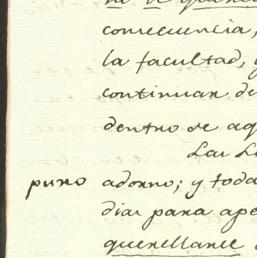 no se quere
consecuencia,
la facultad, y
continuar de
dentro de aq
Las L
puro adorno; y toda
diar para ape
querellarse